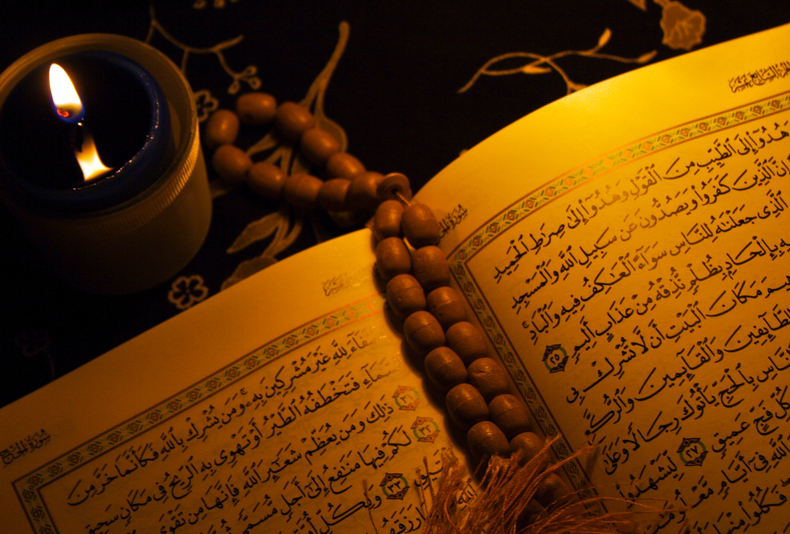 الجزء السابع عشر
سورة الحج
وَهُدُوٓا۟ إِلَى ٱلطَّيِّبِ مِنَ ٱلْقَوْلِ وَهُدُوٓا۟ إِلَىٰ صِرَٰطِ ٱلْحَمِيدِ
إِنَّ ٱلَّذِينَ كَفَرُوا۟ وَيَصُدُّونَ عَن سَبِيلِ ٱللَّهِ وَٱلْمَسْجِدِ
ٱلَّذِى جَعَلْنَٰهُ لِلنَّاسِ سَوَآءً ٱلْعَٰكِفُ فِيهِ وَٱلْبَادِ
بِإِلْحَادٍۭ بِظُلْمٍ نُّذِقْهُ مِنْ عَذَابٍ أَلِيمٍ ٢٥
مَكَانَ ٱلْبَيْتِ أَن لَّا تُشْرِكْ بِى
لِلطَّآئِفِينَ وَٱلْقَآئِمِينَ وَٱلرُّكَّعِ
ٱلنَّاسِ بِٱلْحَجِّ يَأْتُوكَ رِجَالًا وَعَلَىٰ
كُلِّ فَجٍّ عَمِيقٍ ٢٧ لِّيَشْهَدُوا۟
ٱللَّهِ فِىٓ أَيَّامٍ
فَكُلُوا۟
سورة الحج
حُنَفَآءَ لِلَّهِ غَيْرَ مُشْرِكِينَ بِهِۦ وَمَن يُشْرِكْ بِٱللَّهِ فَكَأَنَّمَا خَرَّ مِنَ
ٱلسَّمَآءِ فَتَخْطَفُهُ ٱلطَّيْرُ أَوْ تَهْوِى بِهِ ٱلرِّيحُ فِى مَكَانٍ سَحِيقٍ
٣١ ذَٰلِكَ وَمَن يُعَظِّمْ شَعَٰٓئِرَ ٱللَّهِ فَإِنَّهَا مِن تَقْوَى
٣٢ لَكُمْ فِيهَا مَنَٰفِعُ إِلَىٰٓ أَجَلٍ مُّسَمًّى
٣٣ وَلِكُلِّ أُمَّةٍ